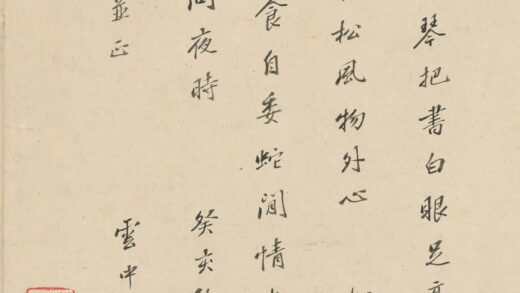 琴把書白眼足
松風物外心
食自委蛇閒情
問夜時 癸亥
並正 雲中